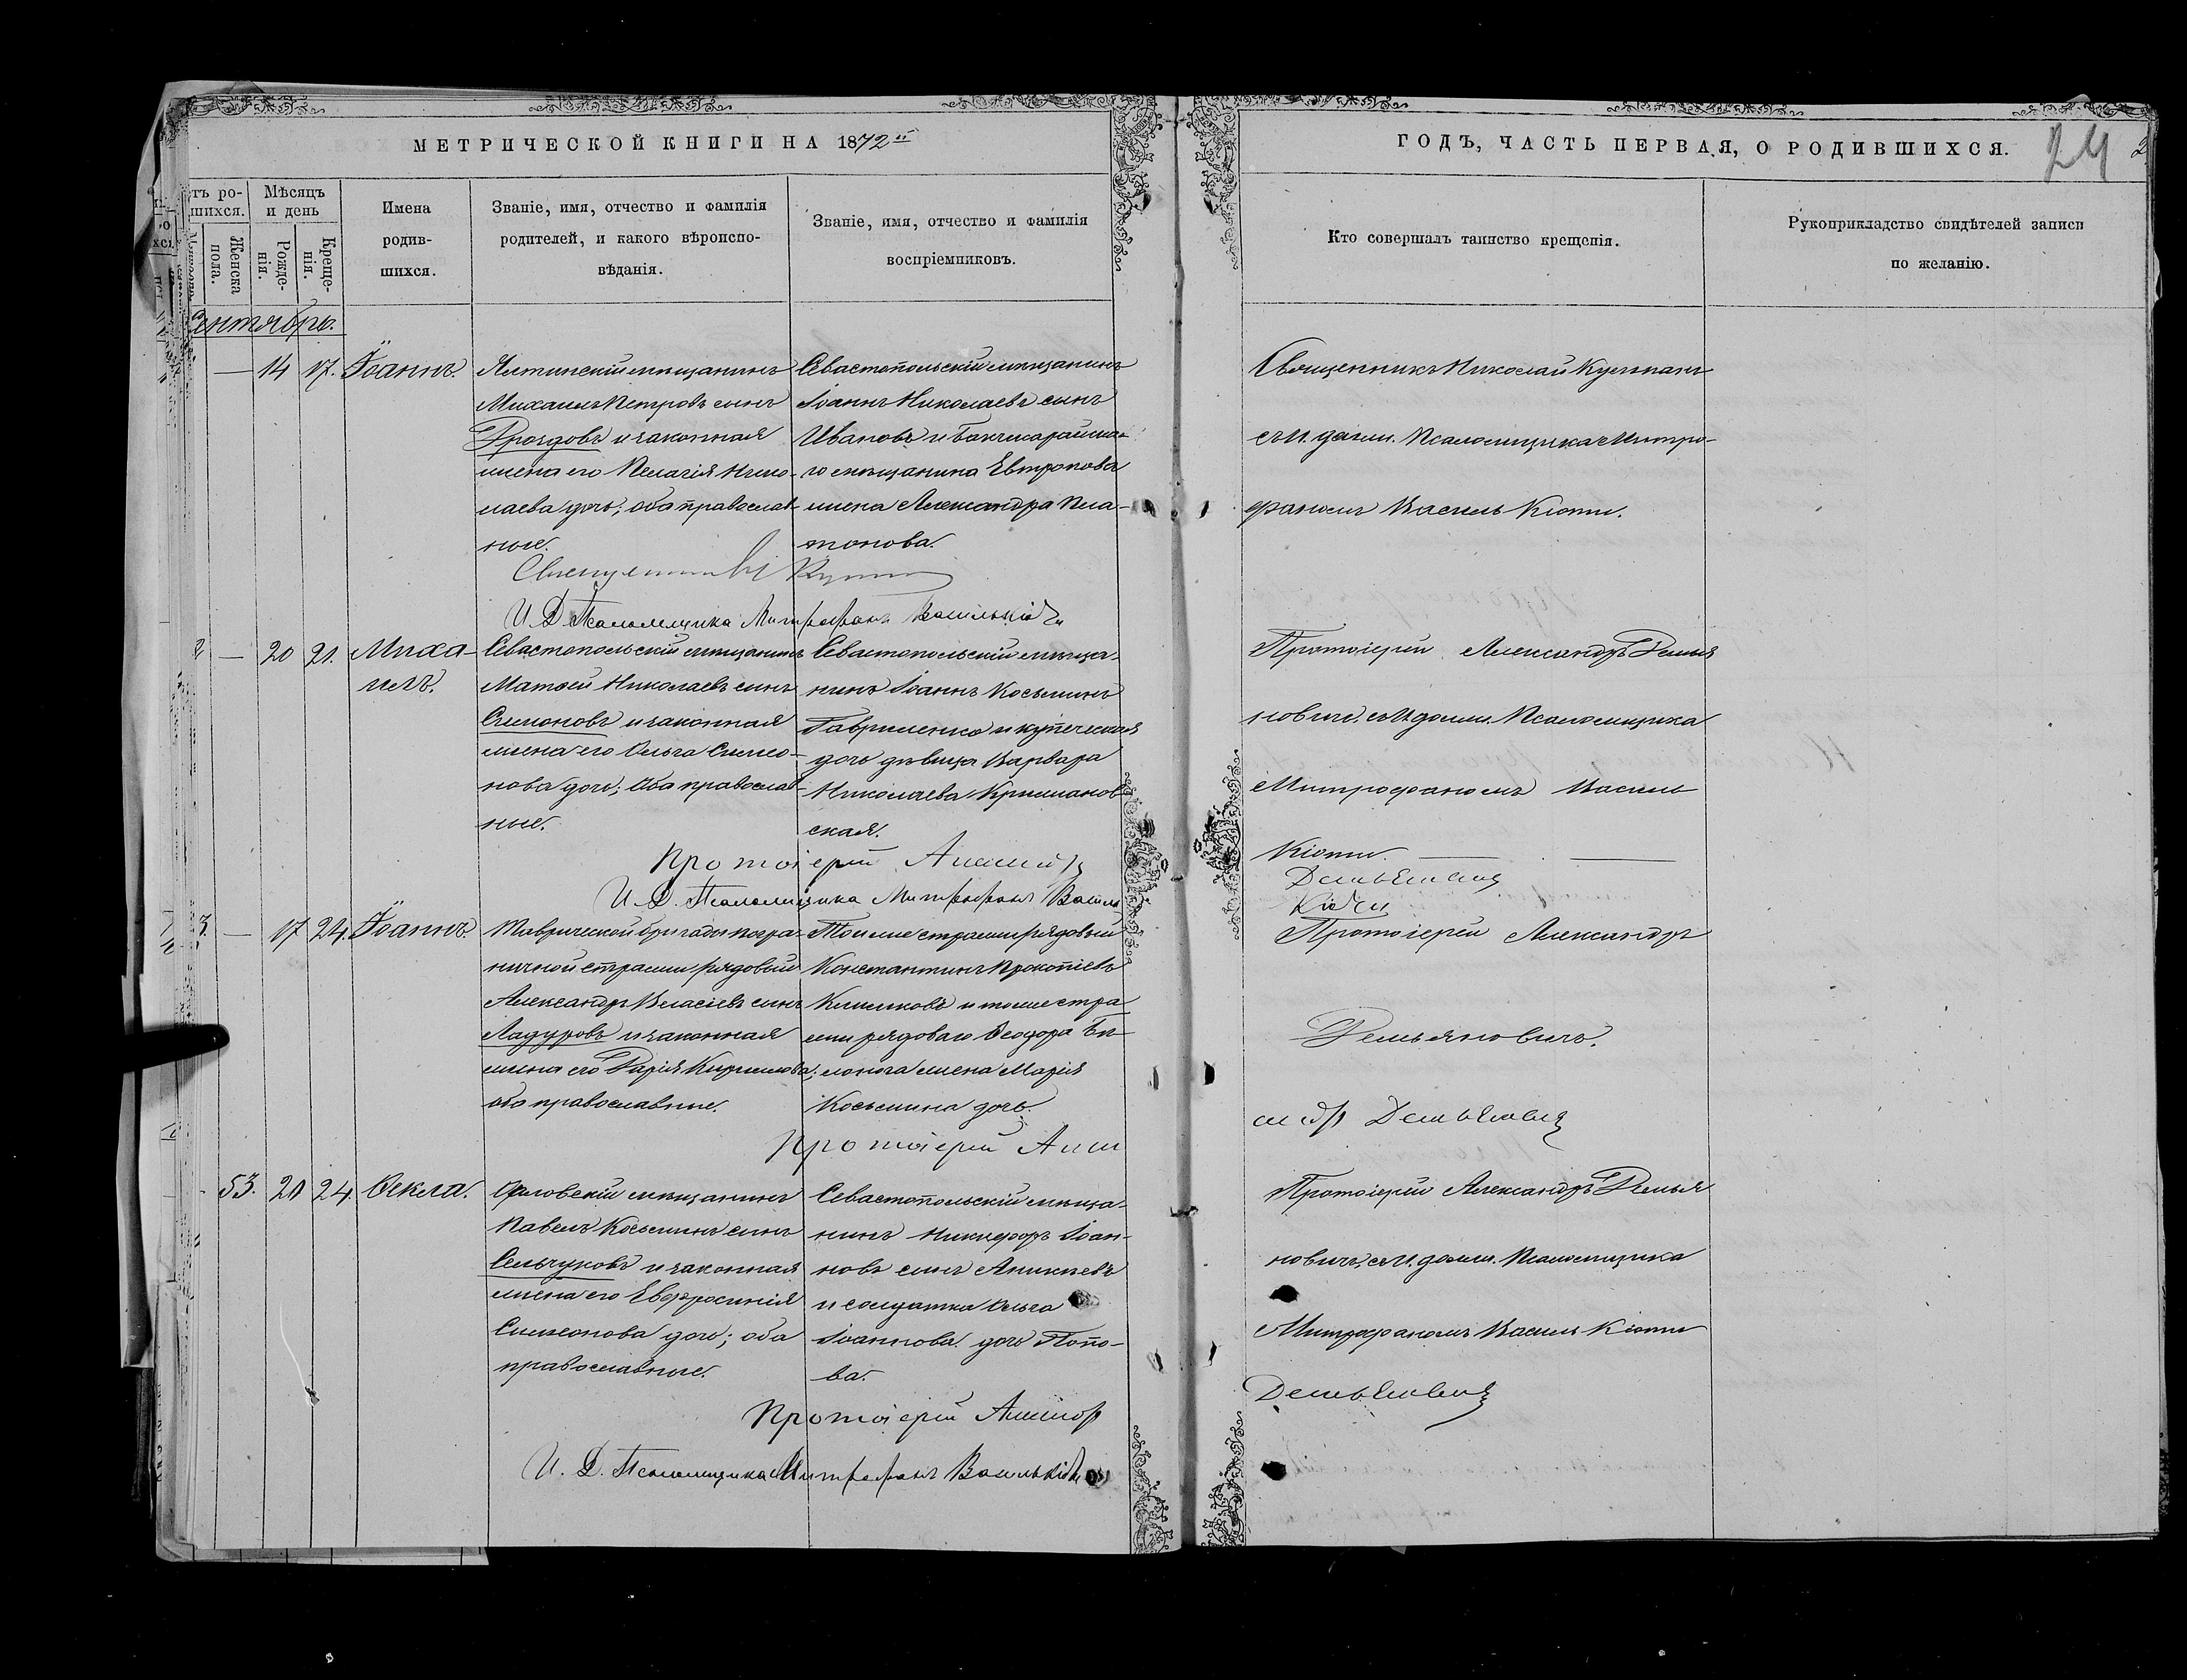 МЕТРИЧЕСКОЙ КНИГИ НА 1872й
ГОДЪ, ЧАСТЬ ПЕРВАЯ, О РОДИВШИХСЯ.
24
тъ ро-
шихся.
Женска
пола.
Мѣсяцъ
и день
Рожде-
нія.
Креще-
нія.
Имена
родив-
шихся.
Званіе, имя, отчество и фамилія
родителей, и какого вѣроиспо-
вѣданія.
Званіе, имя, отчество и фамилія
воспріемниковъ.
Кто совершалъ таинство крещенія.
Рукоприкладство свидѣтелей записи
по желанію.
Сентябрь.
— 14 17. Іоаннъ.
Ялтинскій мѣщанинъ
Михаилъ Петровъ сынъ
Дроздовъ и законная
жена его Пелагія Нико-
лаева дочь; оба православ-
ные.
Севастопольскій мѣщанинъ
Іоаннъ Николаевъ сынъ
Ивановъ и Бахчисарайска-
го мѣщанина Евтропова
жена Александра Пла-
тонова.
Священникъ Николай
съ и. долж. Псаломщика Митро-
фаномъ Василь Кіоти.
И. Д. Псаломщика Митрофанъ Василькіоти
— 20 21. Миха-
илъ.
Севастопольскій мѣщанинъ
Матѳей Николаевъ сынъ
Симоновъ и законная
жена его Ольга Симео-
нова дочь; оба православ-
ные.
Севастопольскій мѣща-
нинъ Іоаннъ Косьминъ
Гавриленко и купеческая
дочь дѣвица Варвара
Николаева
ская.
Протоіерей Александръ Демья
новичъ съ и. долж. Псаломщика
Митрофаномъ Василь
Кіоти.
Протоіерей
Демьяновичъ
И. Д. Псаломщика Митрофанъ Василь
Кіоти
3. — 17 24. Іоаннъ.
Таврической бригады погра-
ничной стражи рядовый
Александръ Власіевъ сынъ
Ладуровъ и законная
жена его Дарія Кириллова;
оба православные.
Той же стражи рядовый
Константинъ Прокопіевъ
и той же стра
жи рядоваго Ѳеодора Бѣ-
лонога жена Марія
Косьмина дочь.
Протоіерей Александръ
Демьяновичъ.
Протоіерей Алек
сандръ Демьяновичъ
53. 20 24. Ѳекла.
Орловскій мѣщанинъ
Павелъ Косьминъ сынъ
Сельчуковъ и законная
жена его Евфросинія
Симеонова дочь; оба
православные.
Севастопольскій мѣща-
нинъ Никифоръ Іоан-
новъ сынъ Аникіевъ
и солдатка Ольга
Іоаннова дочь Попо-
ва.
Протоіерей Александръ Демья
новичъ, съ и. долж. Псаломщика
Митрофаномъ Василь Кіоти
Протоіерей
Демьяновичъ
И. Д. Псаломщика Митрофанъ Василькіоти